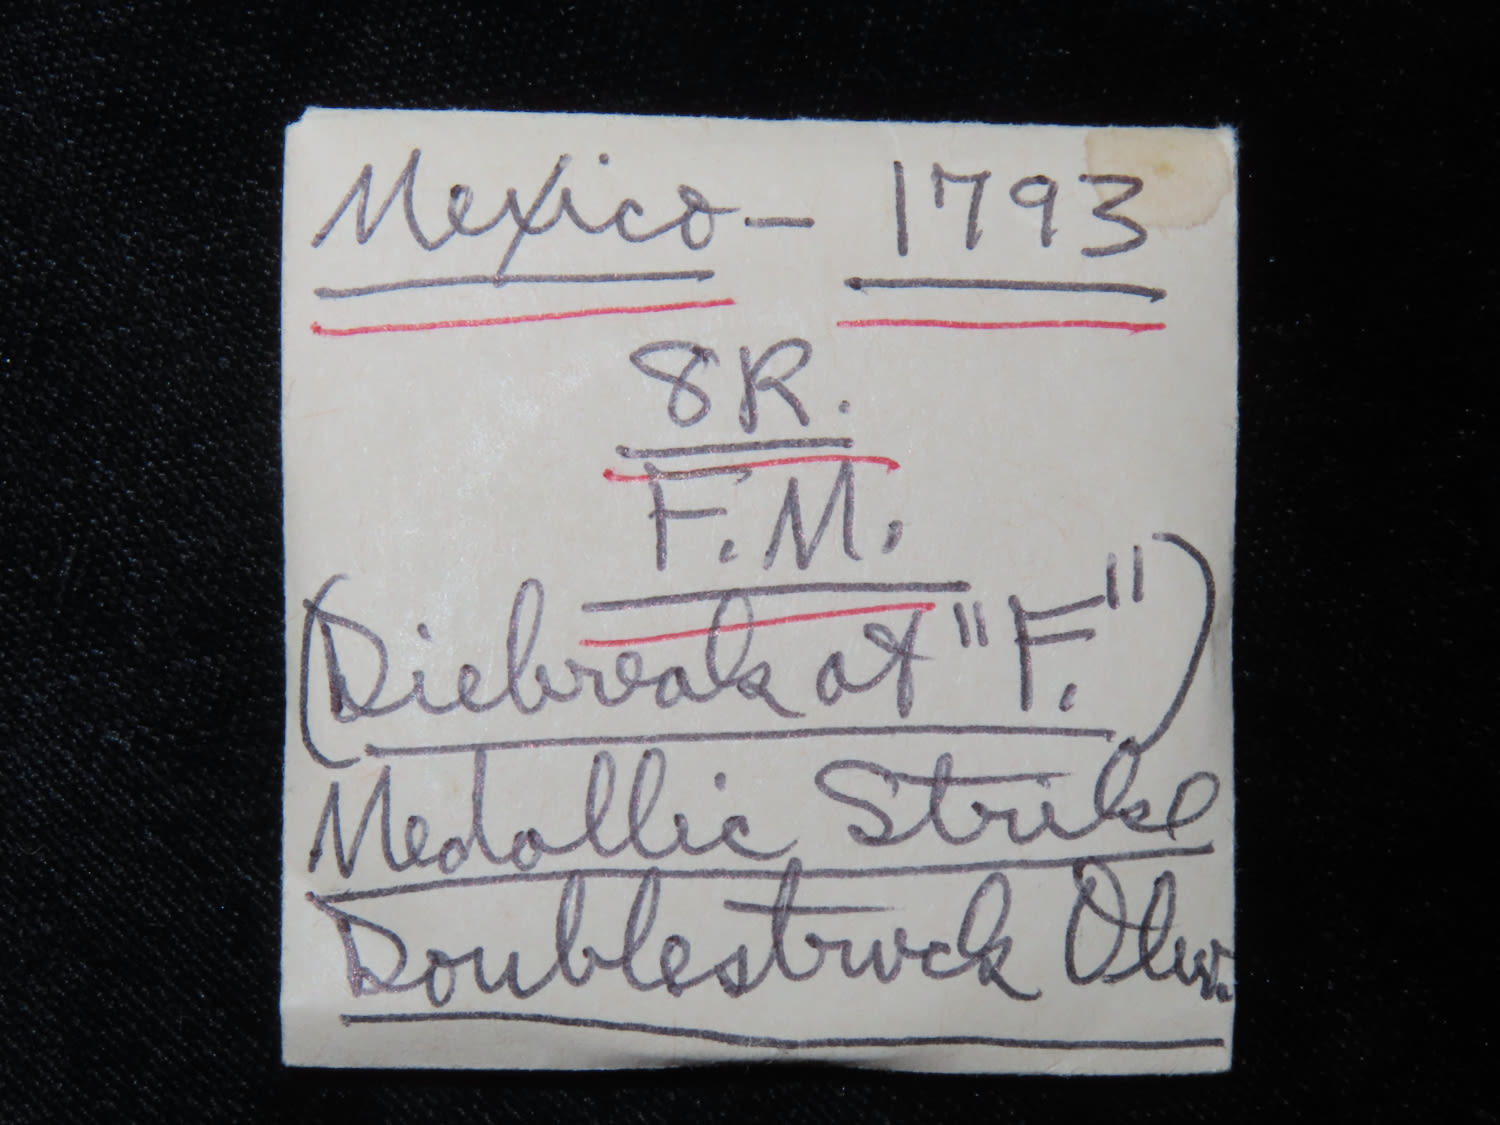 Mexico – 1793
8R.
F.M.
(Diebreak at "F.")
Medallic Strike
Doublestruck Obv.